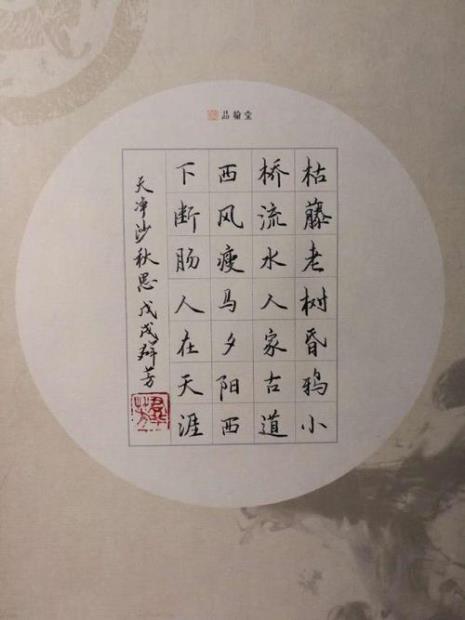 品翰堂
枯藤老树昏鸦小
桥流水人家古道
西风瘦马夕阳西
下断肠人在天涯
天净沙秋思戊戌芳